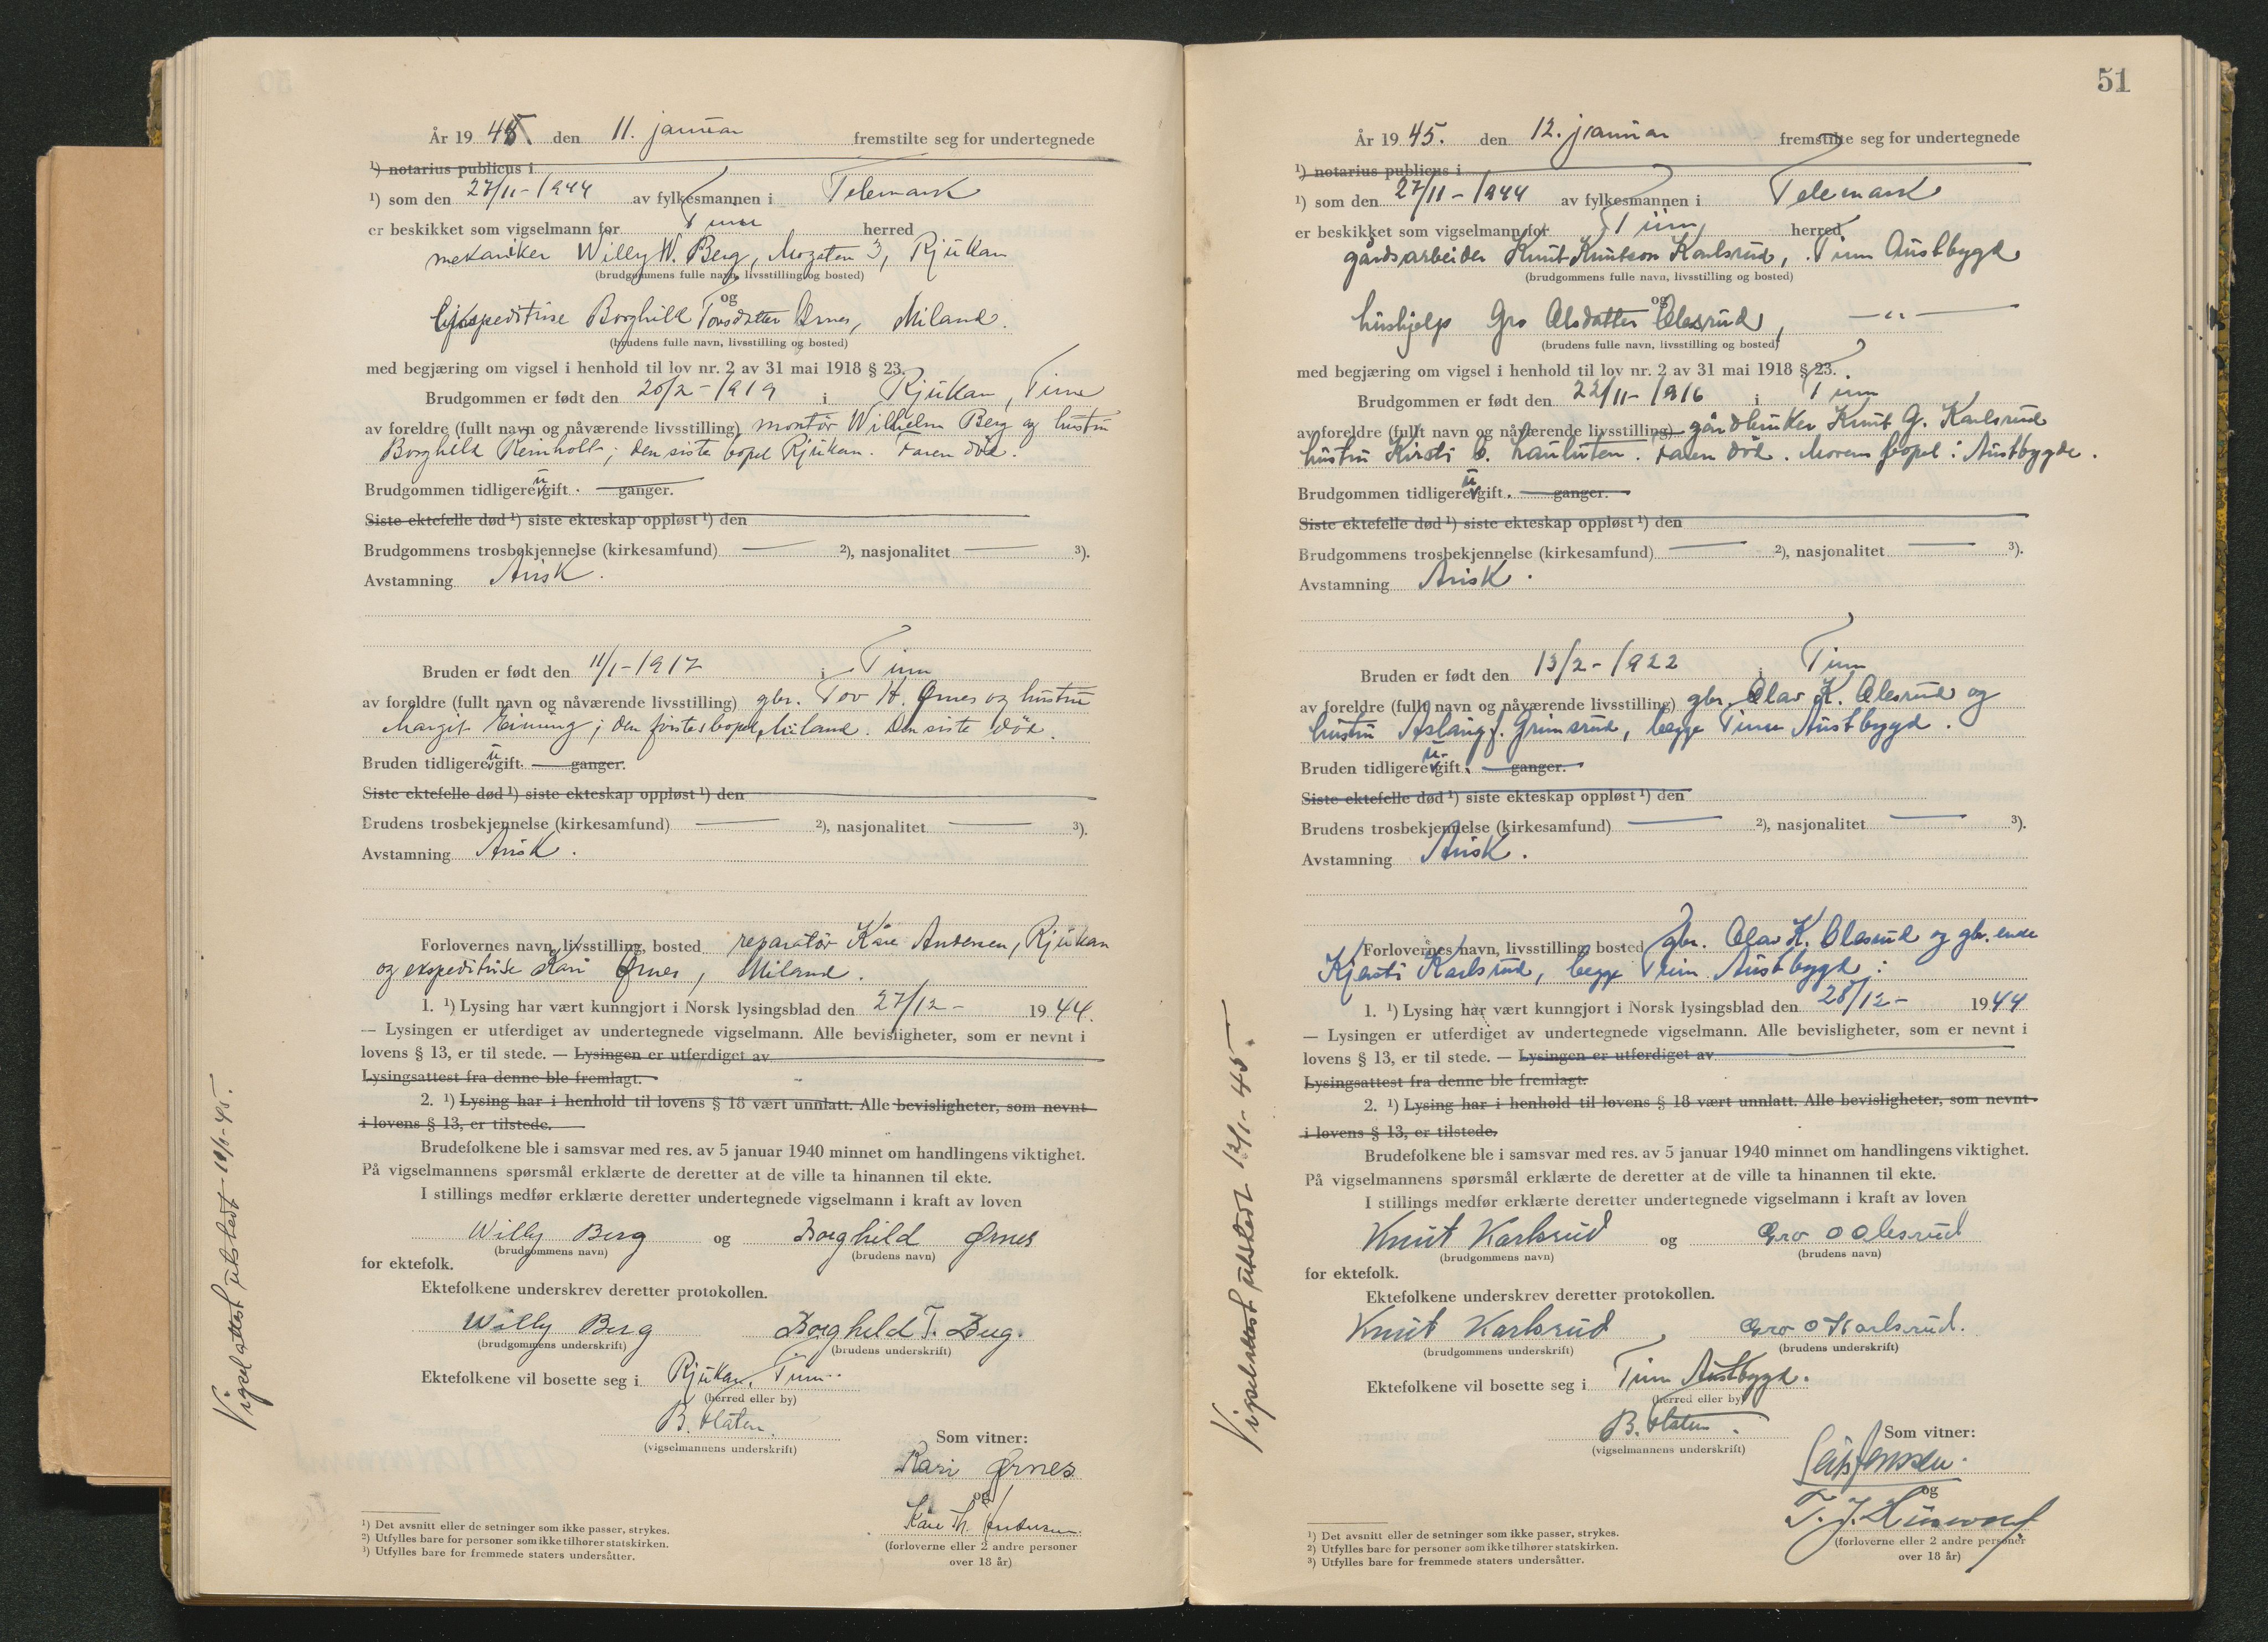 År 1945. den 11. januar fremstilte seg for undertegnede
¹) notarius publicus i
¹) som den 27/11-1944 av fylkesmannen i Telemark
er beskikket som vigselmann for Tinn herred
mekaniker Willy W. Berg, Mozaten 3, Rjukan
(brudgommens fulle navn, livsstilling og bosted)
og
Ekspeditrise Borghild Torsdatter Ørnes, Miland.
(brudens fulle navn, livsstilling og bosted)
med begjæring om vigsel i henhold til lov nr. 2 av 31 mai 1918 § 23.
Brudgommen er født den 20/2-1919 i Rjukan, Tinn
av foreldre (fullt navn og nåværende livsstilling) montør Wilhelm Berg og hustru
Borghild Reinholt; den siste bopel Rjukan. Faren død.
Brudgommen tidligere ugift. ganger.
Siste ektefelle død ¹) siste ekteskap oppløst ¹) den
Brudgommens trosbekjennelse (kirkesamfund) — ²), nasjonalitet — ³).
Avstamning Arisk.
Bruden er født den 11/1-1917 i Tinn
av foreldre (fullt navn og nåværende livsstilling) gbr. Tov H. Ørnes og hustru
Margit Einung; den førstes bopel Miland. Den siste død.
Bruden tidligere ugift. ganger.
Siste ektefelle død ¹) siste ekteskap oppløst ¹) den
Brudens trosbekjennelse (kirkesamfund) — ²), nasjonalitet — ³).
Avstamning Arisk.
Forlovernes navn, livsstilling, bosted reparatør Kåre Andersen, Rjukan
og ekspeditrise Kari Ørnes, Miland.
1. ¹) Lysing har vært kunngjort i Norsk lysingsblad den 27/12- 1944.
— Lysingen er utferdiget av undertegnede vigselmann. Alle bevisligheter, som er nevnt i
lovens § 13, er til stede. — Lysingen er utferdiget av
Lysingsattest fra denne ble fremlagt.
2. ¹) Lysing har i henhold til lovens § 18 vært unnlatt. Alle bevisligheter, som nevnt
i lovens § 13, er tilstede.
Brudefolkene ble i samsvar med res. av 5 januar 1940 minnet om handlingens viktighet.
På vigselmannens spørsmål erklærte de deretter at de ville ta hinannen til ekte.
I stillings medfør erklærte deretter undertegnede vigselmann i kraft av loven
Willy Berg og Borghild Ørnes
(brudgommens navn) (brudens navn)
for ektefolk.
Ektefolkene underskrev deretter protokollen.
Willy Berg Borghild T. Berg.
(brudgommens underskrift) (brudens underskrift)
Ektefolkene vil bosette seg i Rjukan, Tinn.
(herred eller by)
B. Haten.
(vigselmannens underskrift)
Som vitner:
Kari Ørnes
og
Kåre Th. Andersen.
(forloverne eller 2 andre personer
over 18 år)
¹) Det avsnitt eller de setninger som ikke passer, strykes.
²) Utfylles bare for personer som ikke tilhører statskirken.
³) Utfylles bare for fremmede staters undersåtter.
Vigselattest utstedt 11/1-45.
51
År 1945. den 12. januar fremstilte seg for undertegnede
¹) notarius publicus i
¹) som den 27/11-1944 av fylkesmannen i Telemark
er beskikket som vigselmann for Tinn herred
gårdsarbeider Knut Knutson Karlsrud, Tinn Austbygd
(brudgommens fulle navn, livsstilling og bosted)
og
hushjelp Gro Olsdatter Olesrud, —"—
(brudens fulle navn, livsstilling og bosted)
med begjæring om vigsel i henhold til lov nr. 2 av 31 mai 1918 § 23.
Brudgommen er født den 22/11-1916 i Tinn
av foreldre (fullt navn og nåværende livsstilling) gårdbruker Knut G. Karlsrud
hustru Kirsti Faren død. Morens bopel: Austbygde.
Brudgommen tidligere ugift. ganger.
Siste ektefelle død ¹) siste ekteskap oppløst ¹) den
Brudgommens trosbekjennelse (kirkesamfund) — ²), nasjonalitet — ³).
Avstamning Arisk.
Bruden er født den 13/2-1922 i Tinn
av foreldre (fullt navn og nåværende livsstilling) gbr. Olav K. Olesrud og
hustru Aslaug f. Grimsrud, begge Tinn Austbygd.
Bruden tidligere ugift. ganger.
Siste ektefelle død ¹) siste ekteskap oppløst ¹) den
Brudens trosbekjennelse (kirkesamfund) — ²), nasjonalitet — ³).
Avstamning Arisk.
Forlovernes navn, livsstilling, bosted gbr. Olav K. Olesrud og gbr. enke
Kjersti Karlsrud, begge Tinn Austbygd.
1. ¹) Lysing har vært kunngjort i Norsk lysingsblad den 28/12- 1944
— Lysingen er utferdiget av undertegnede vigselmann. Alle bevisligheter, som er nevnt i
lovens § 13, er til stede. — Lysingen er utferdiget av
Lysingsattest fra denne ble fremlagt.
2. ¹) Lysing har i henhold til lovens § 18 vært unnlatt. Alle bevisligheter, som nevnt
i lovens § 13, er tilstede.
Brudefolkene ble i samsvar med res. av 5 januar 1940 minnet om handlingens viktighet.
På vigselmannens spørsmål erklærte de deretter at de ville ta hinannen til ekte.
I stillings medfør erklærte deretter undertegnede vigselmann i kraft av loven
Knut Karlsrud og Gro O Olesrud
(brudgommens navn) (brudens navn)
for ektefolk.
Ektefolkene underskrev deretter protokollen.
Knut Karlsrud Gro O Karlsrud.
(brudgommens underskrift) (brudens underskrift)
Ektefolkene vil bosette seg i Tinn Austbygd.
(herred eller by)
B. Haten.
(vigselmannens underskrift)
Som vitner:
Jenssen.
og
T. J.
(forloverne eller 2 andre personer
over 18 år)
¹) Det avsnitt eller de setninger som ikke passer, strykes.
²) Utfylles bare for personer som ikke tilhører statskirken.
³) Utfylles bare for fremmede staters undersåtter.
Vigselattest utstedt 12/1-45.